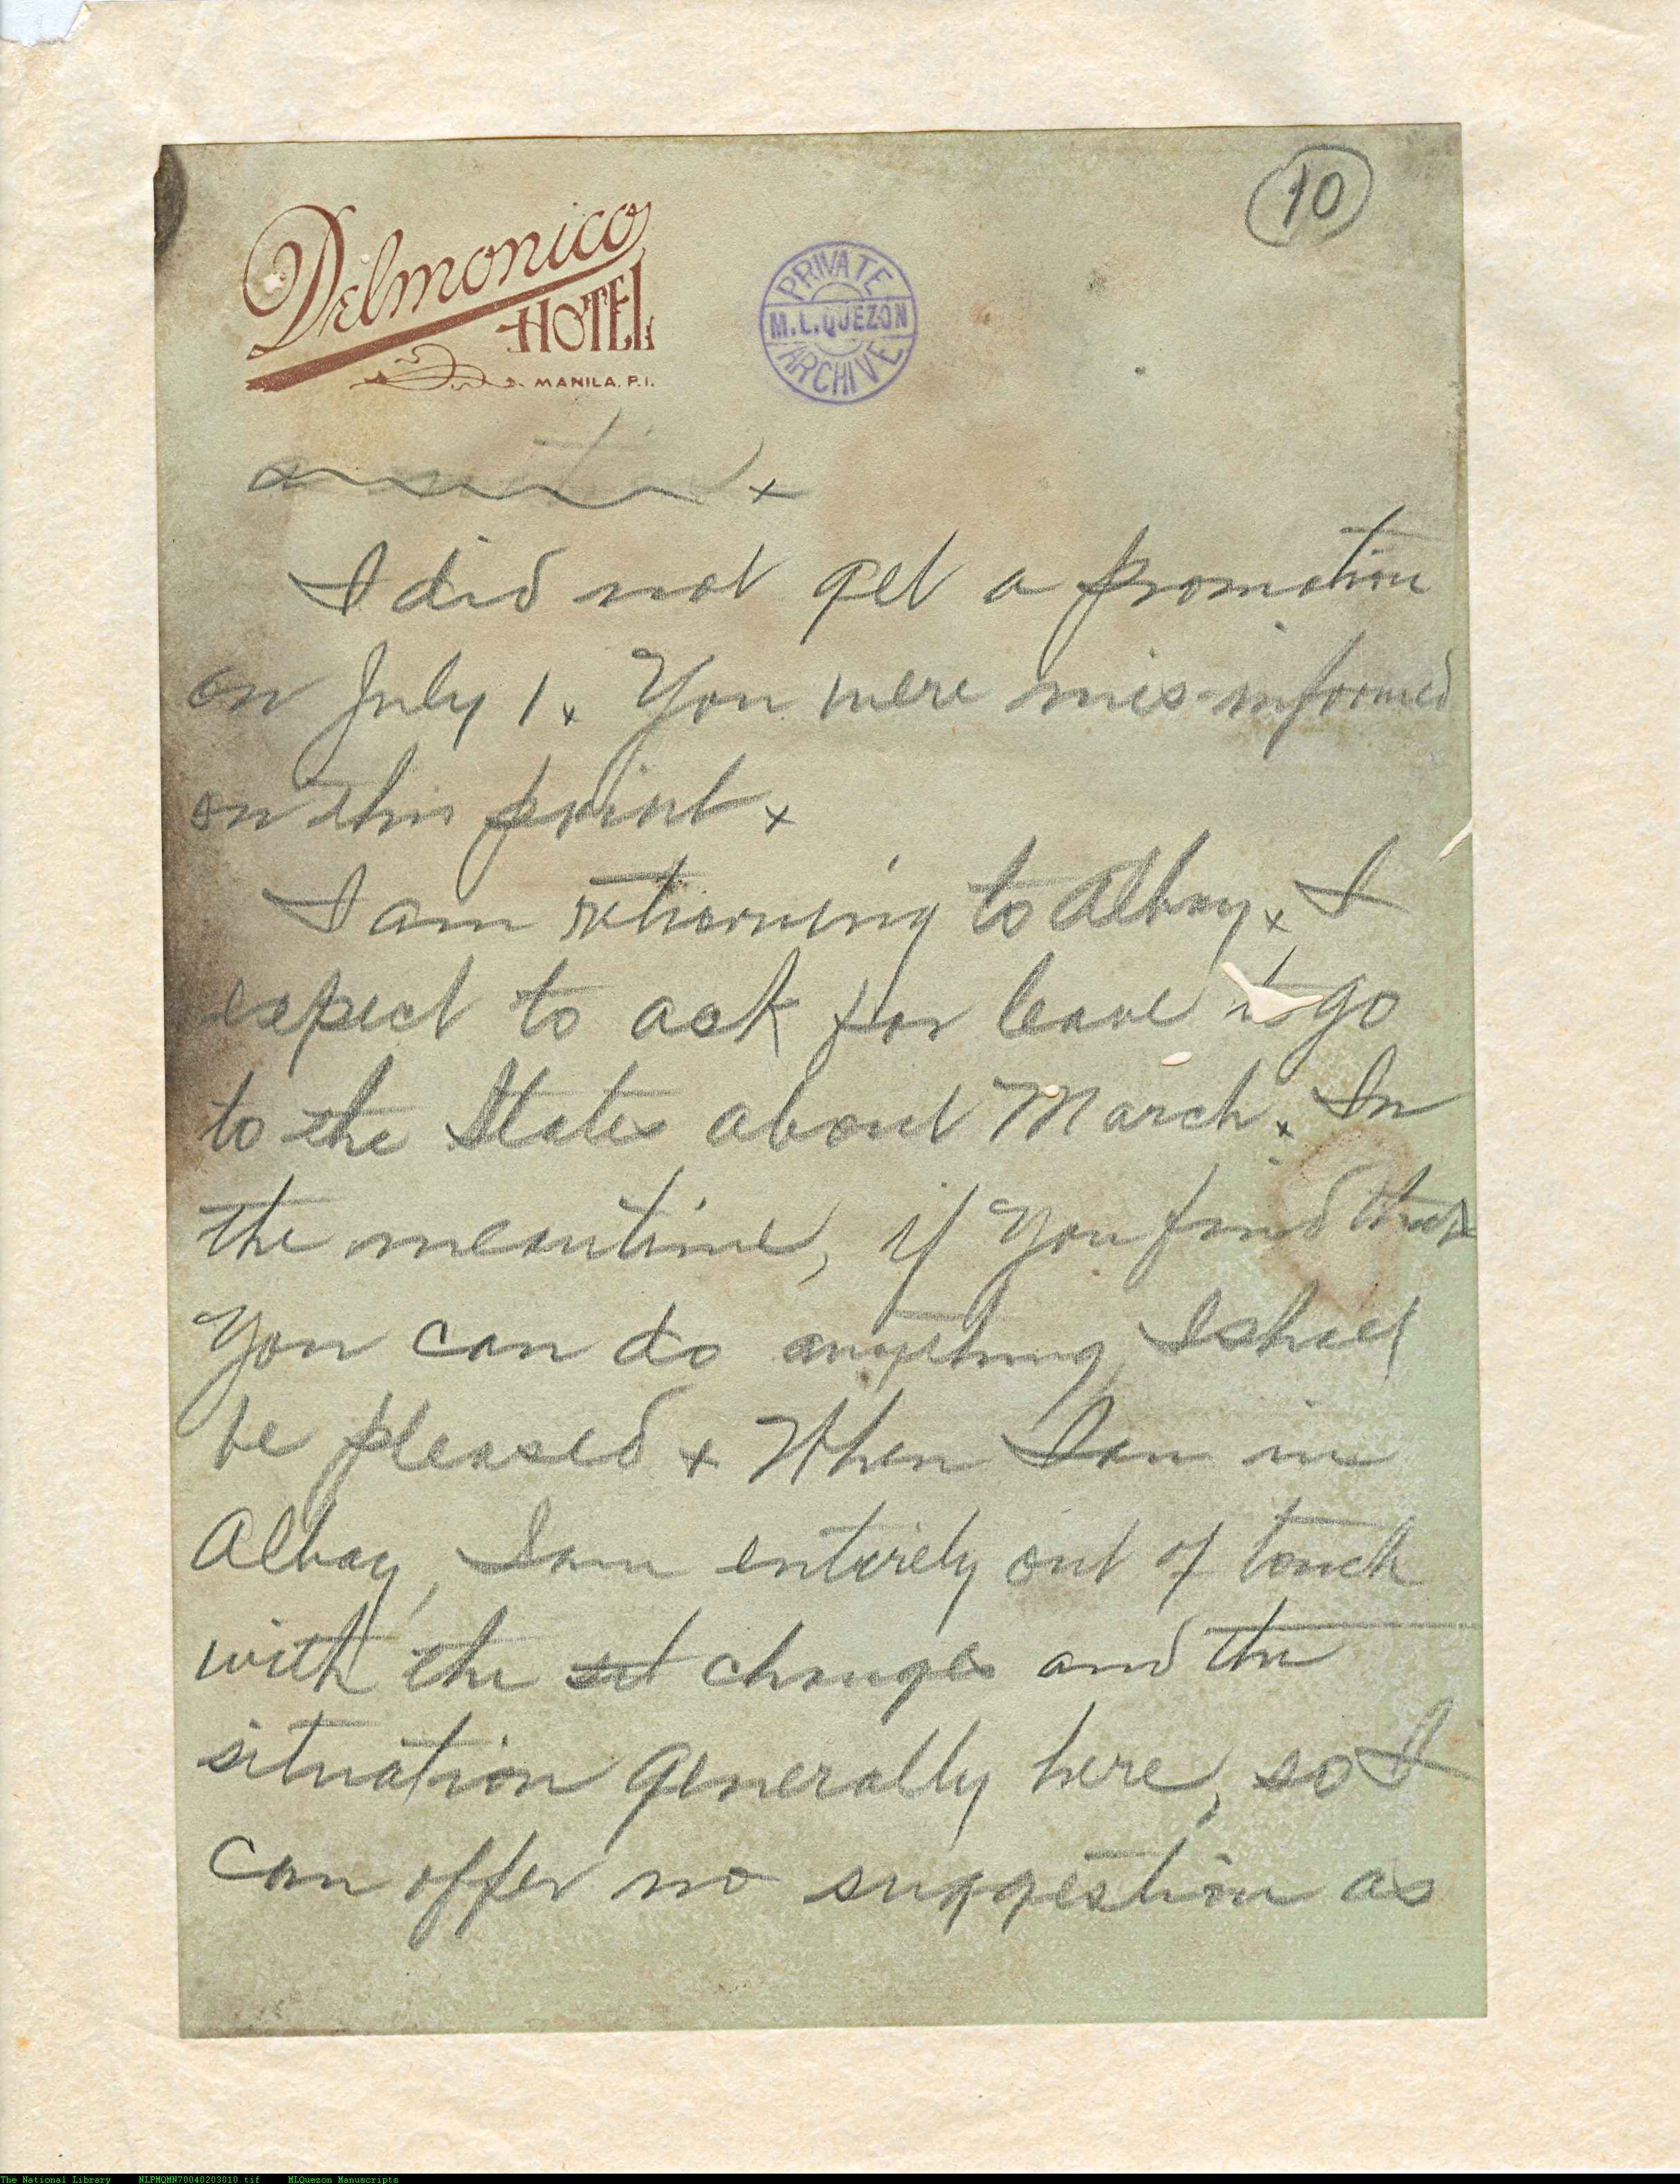 10
Delmonico
HOTEL
MANILA, P.I.
PRIVATE
M. L. QUEZON
ARCHIVE
I did not get a promotion
on July 1x You were mis-informed
on this point x
I am returning to Albay x I
expect to ask for leave to go
to the States about March x In
the meantime, if you find that
you can do anything, I shall
be pleased x When I am in
Albay, I am entirely out of touch
with the sit changes and the
situation generally here, so I
can offer no suggestion as
The National Library NLPMQMN70040203010.tif MLQuezon Manuscripts